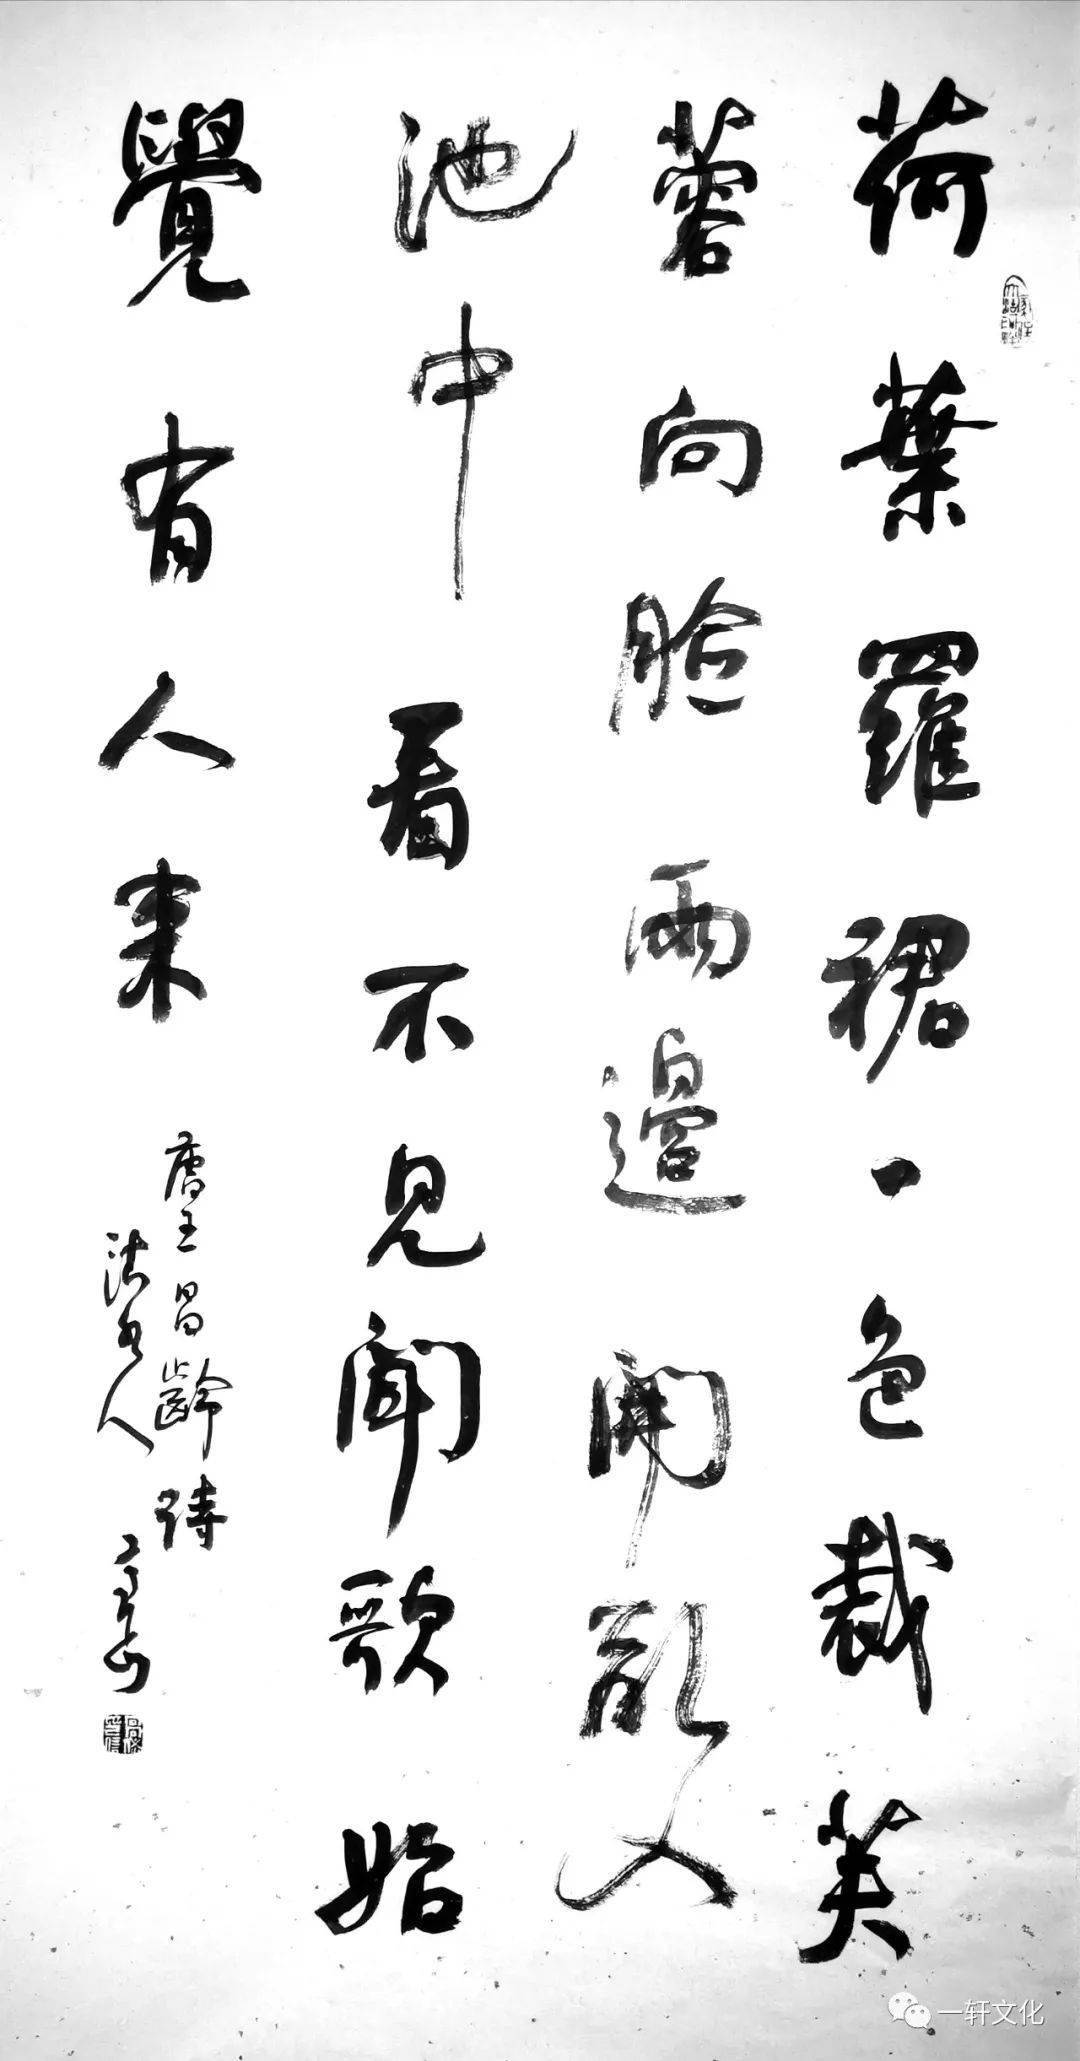 荷葉羅裙一色裁芙
蓉向臉兩邊開亂入
池中看不見聞歌始
覺有人來
唐王昌齡詩
一轩文化